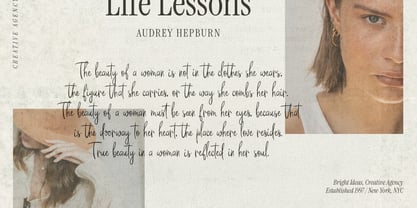 CREATIVE AGENCY
Life Lessons
AUDREY HEPBURN
The beauty of a woman is not in the clothes she wears,
the figure that she carries, or the way she combs her hair.
The beauty of a woman must be seen from her eyes, because that
is the doorway to her heart, the place where love resides.
True beauty in a woman is reflected in her soul.
Bright Ideas, Creative Agency
Established 1997 / New York, NYC